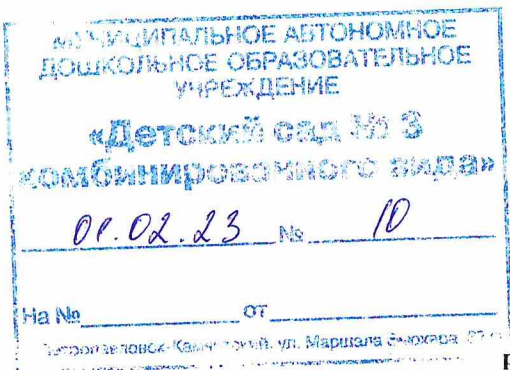 МУНИЦИПАЛЬНОЕ АВТОНОМНОЕ
ДОШКОЛЬНОЕ ОБРАЗОВАТЕЛЬНОЕ
УЧРЕЖДЕНИЕ
«Детский сад № 3
комбинированного вида»
01.02.23 № 10
На № от
Петропавловск-Камчатский, ул. Маршала Блюхера